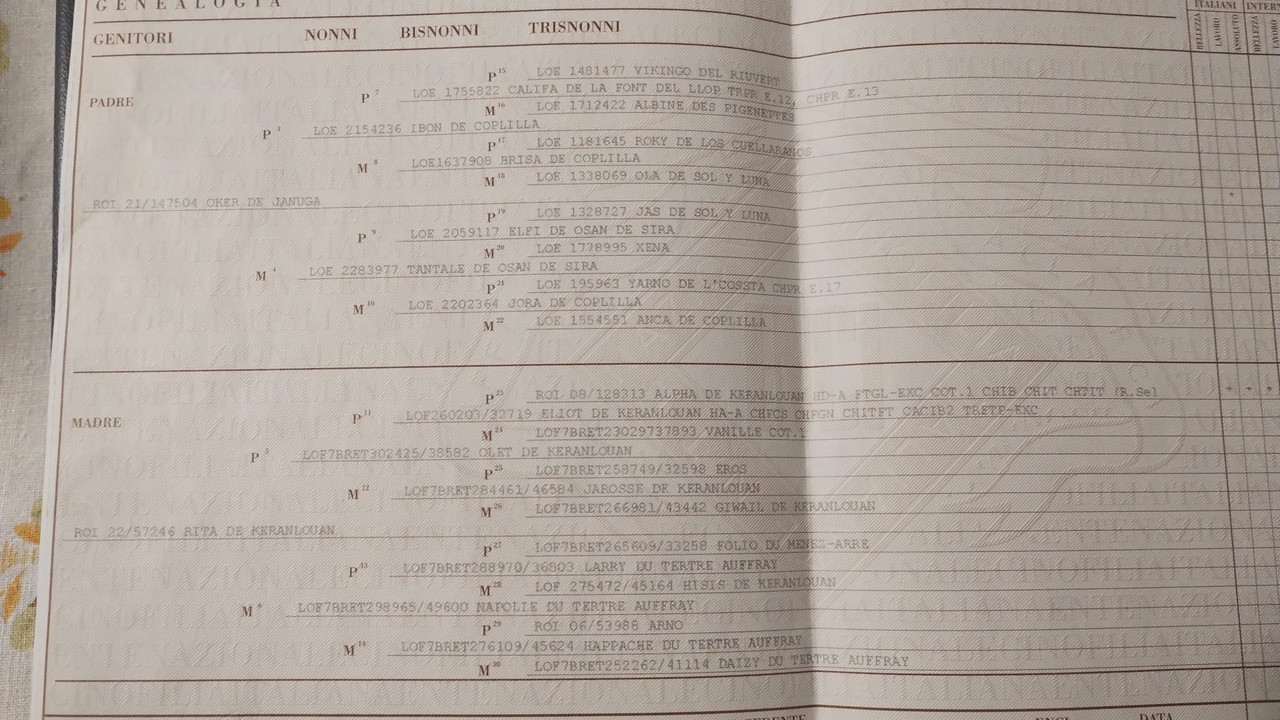 GENEALOGIA
ITALIANI INTERN
GENITORI NONNI BISNONNI TRISNONNI
BELLEZZA LAVORO ASSOLUTO BELLEZZA LAVORO
P 15 LOE 1481477 VIKINGO DEL RIUVERT
PADRE P 7 LOE 1755822 CALIFA DE LA FONT DEL LLOP TRPR E.12, CHPR E.13
M 16 LOE 1712422 ALBINE DES PIGENETTES
P LOE 2154236 IBON DE COPLILLA
P 17 LOE 1181645 ROKY DE LOS CUELLARANOS
M 8 LOE1637908 BRISA DE COPLILLA
M 18 LOE 1338069 OLA DE SOL Y LUNA
ROI 21/147504 OKER DE JANUGA *
P 19 LOE 1328727 JAS DE SOL Y LUNA
P 9 LOE 2059117 ELFI DE OSAN DE SIRA
M 20 LOE 1778995 XENA
M 4 LOE 2283977 TANTALE DE OSAN DE SIRA
P 21 LOE 195963 YARNO DE L'COSSTA CHPR E.17
M 10 LOE 2202364 JORA DE COPLILLA
M 22 LOE 1554551 ANCA DE COPLILLA
P 23 ROI 08/128313 ALPHA DE KERANLOUAN HD-A FTGL-EXC COT.1 CHIB CHIT CHTIT (R.Se) * * *
MADRE P 11 LOF260203/32719 ELIOT DE KERANLOUAN HA-A CHFCS CHFGN CHITFT CACIB2 TRETP-EXC
M 24 LOF7BRET23029737893 VANILLE COT.1
P 5 LOF7BRET302425/38582 OLET DE KERANLOUAN
P 25 LOF7BRET258749/32598 EROS
M 12 LOF7BRET284461/46584 JAROSSE DE KERANLOUAN
M 26 LOF7BRET266981/43442 GIWAIL DE KERANLOUAN
ROI 22/57246 RITA DE KERANLOUAN
P 27 LOF7BRET265609/33258 FOLIO DU MENEZ-ARRE
P 13 LOF7BRET288970/36803 LARRY DU TERTRE AUFFRAY
M 28 LOF 275472/45164 HISIS DE KERANLOUAN
M 6 LOF7BRET298965/49600 NAPOLIE DU TERTRE AUFFRAY
P 29 ROI 06/53988 ARNO
M 14 LOF7BRET276109/45624 HAPPACHE DU TERTRE AUFFRAY
M 30 LOF7BRET252262/41114 DAIZY DU TERTRE AUFFRAY
DATA